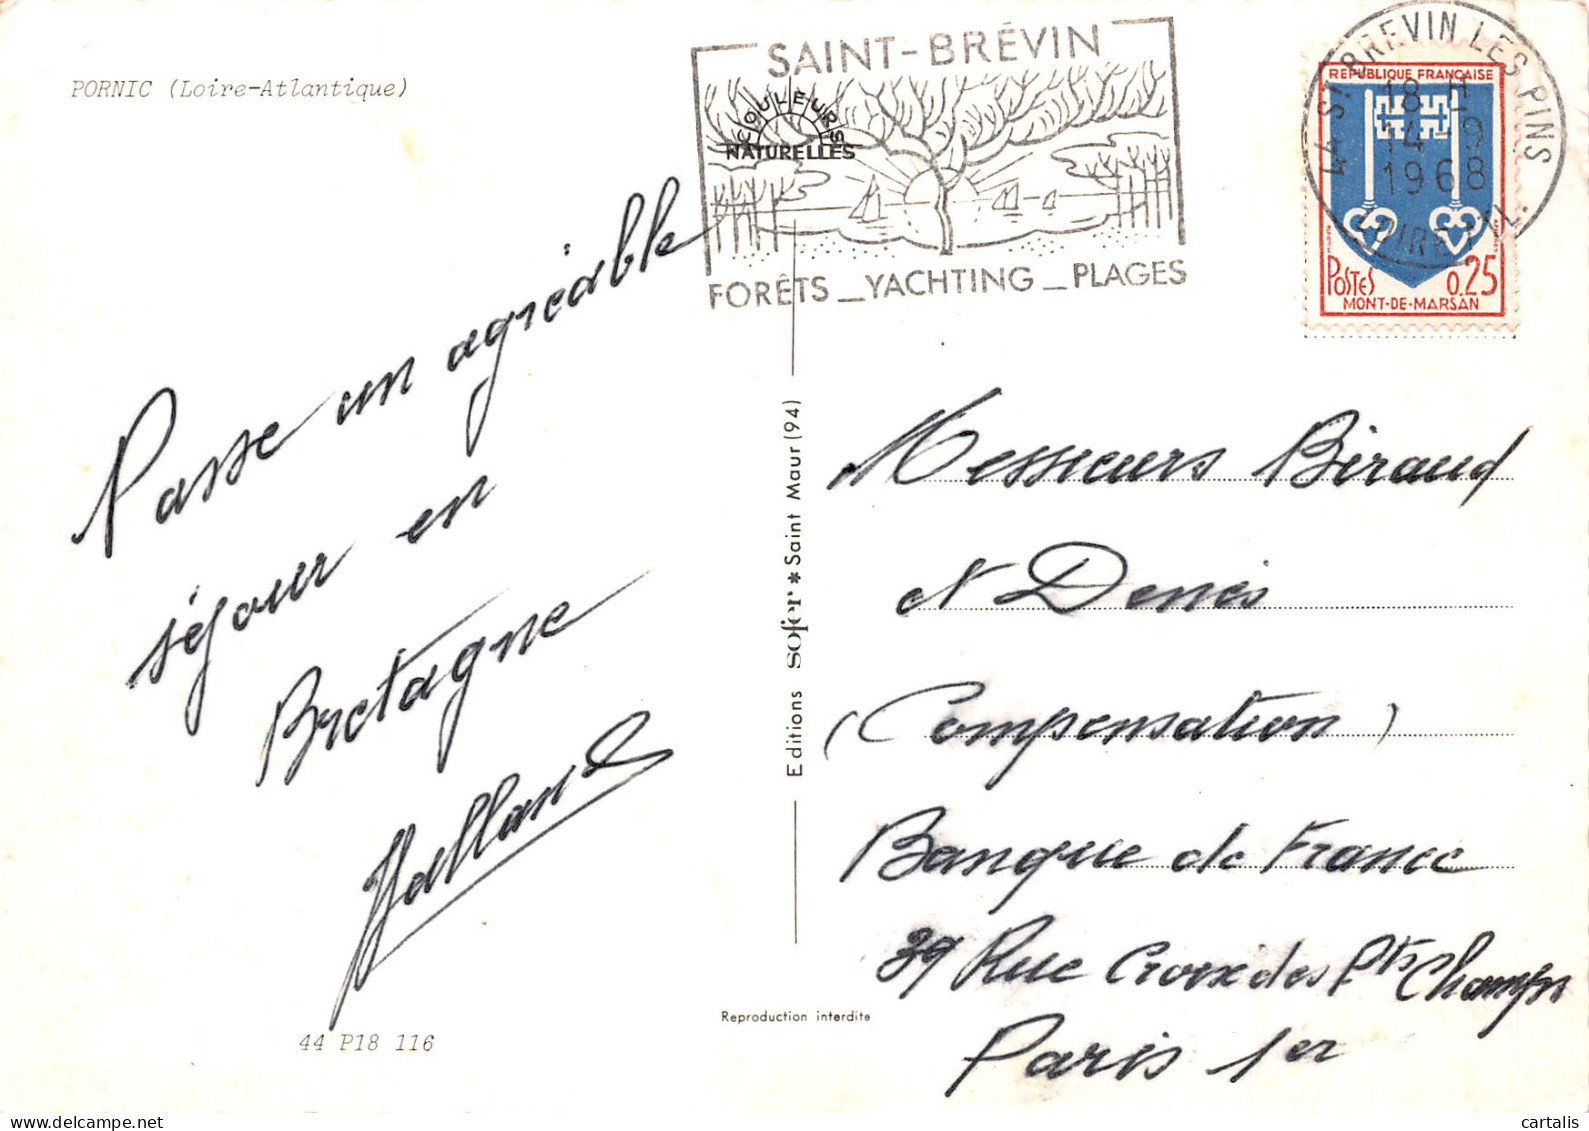 PORNIC (Loire-Atlantique)
SAINT-BRÉVIN
COULEURS
NATURELLES
FORÊTS _ YACHTING _ PLAGES
44 ST BREVIN LES PINS
18 H
14-9
1968
LOIRE ATL.
REPUBLIQUE FRANÇAISE
POSTES 0,25
MONT-DE-MARSAN
Passe un agréable
séjour en
Bretagne
Editions sofer * Saint Maur (94)
Messieurs Biraud
et Denis
(Compensation)
Banque de France
39 Rue Croix des Pts Champs
Paris 1er
Reproduction interdite
44 P18 116
cartalis